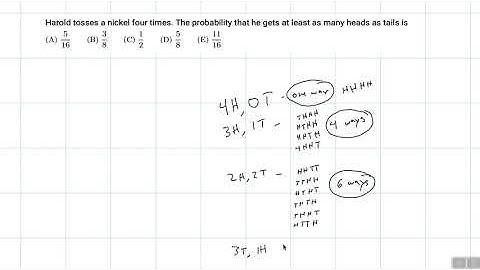 Harold tosses a nickel four times. The probability that he gets at least as many heads as tails is
(A) 5/16 (B) 3/8 (C) 1/2 (D) 5/8 (E) 11/16
4H, 0T - one way HHHH
3H, 1T - THHH
HTHH
HHTH
HHHT
4 ways
2H, 2T - HHTT
TTHH
HTHT
THTH
THHT
HTTH
6 ways
3T, 1H